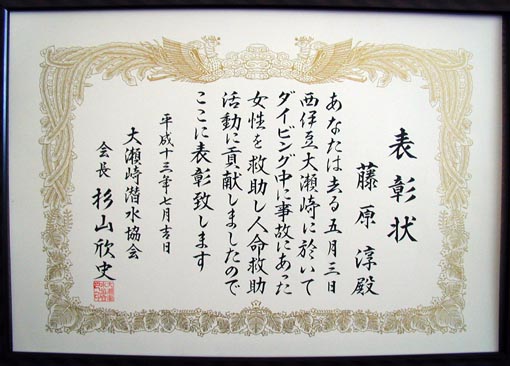 表彰状
藤原淳殿
あなたは去る五月三日
西伊豆大瀬崎に於いて
ダイビング中に事故にあった
女性を救助し人命救助
活動に貢献しましたので
ここに表彰致します
平成十三年七月吉日
大瀬崎潜水協会
会長 杉山欣史